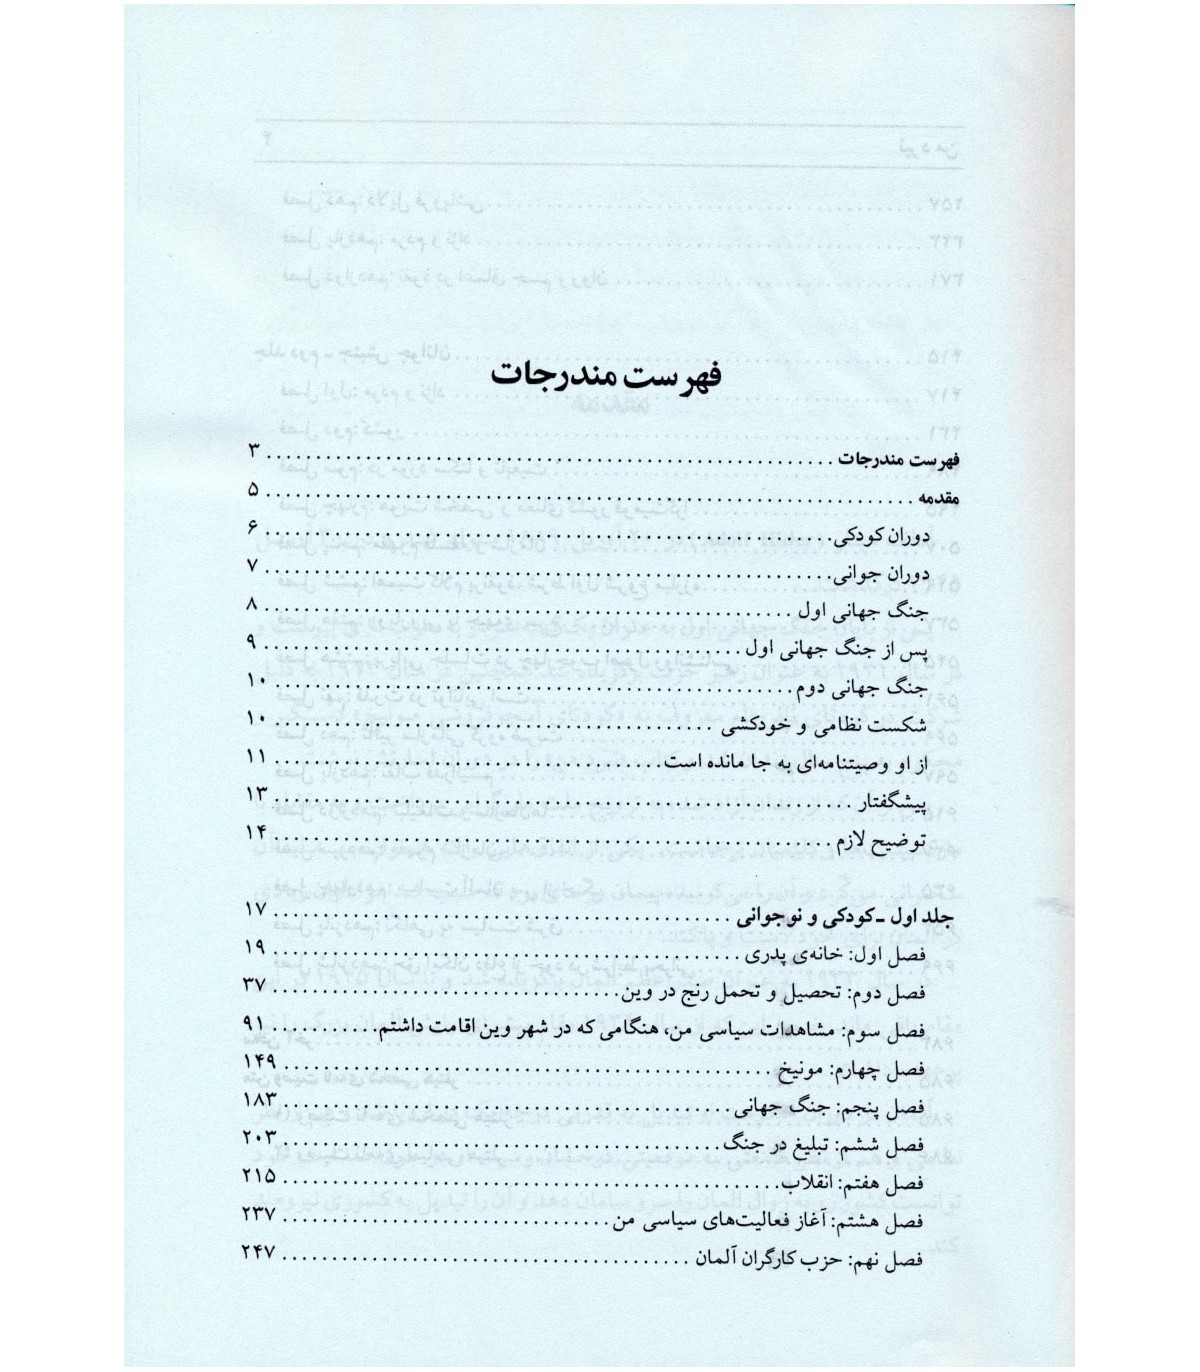 فهرست مندرجات
فهرست مندرجات ........ ۳
مقدمه ........ ۵
دوران کودکی ........ ۶
دوران جوانی ........ ۷
جنگ جهانی اول ........ ۸
پس از جنگ جهانی اول ........ ۹
جنگ جهانی دوم ........ ۱۰
شکست نظامی و خودکشی ........ ۱۰
از او وصیتنامه‌ای به جا مانده است ........ ۱۱
پیشگفتار ........ ۱۳
توضیح لازم ........ ۱۴
جلد اول ـ کودکی و نوجوانی ........ ۱۷
فصل اول: خانه‌ی پدری ........ ۱۹
فصل دوم: تحصیل و تحمل رنج در وین ........ ۳۷
فصل سوم: مشاهدات سیاسی من، هنگامی که در شهر وین اقامت داشتم ........ ۹۱
فصل چهارم: مونیخ ........ ۱۴۹
فصل پنجم: جنگ جهانی ........ ۱۸۳
فصل ششم: تبلیغ در جنگ ........ ۲۰۳
فصل هفتم: انقلاب ........ ۲۱۵
فصل هشتم: آغاز فعالیت‌های سیاسی من ........ ۲۳۷
فصل نهم: حزب کارگران آلمان ........ ۲۴۷